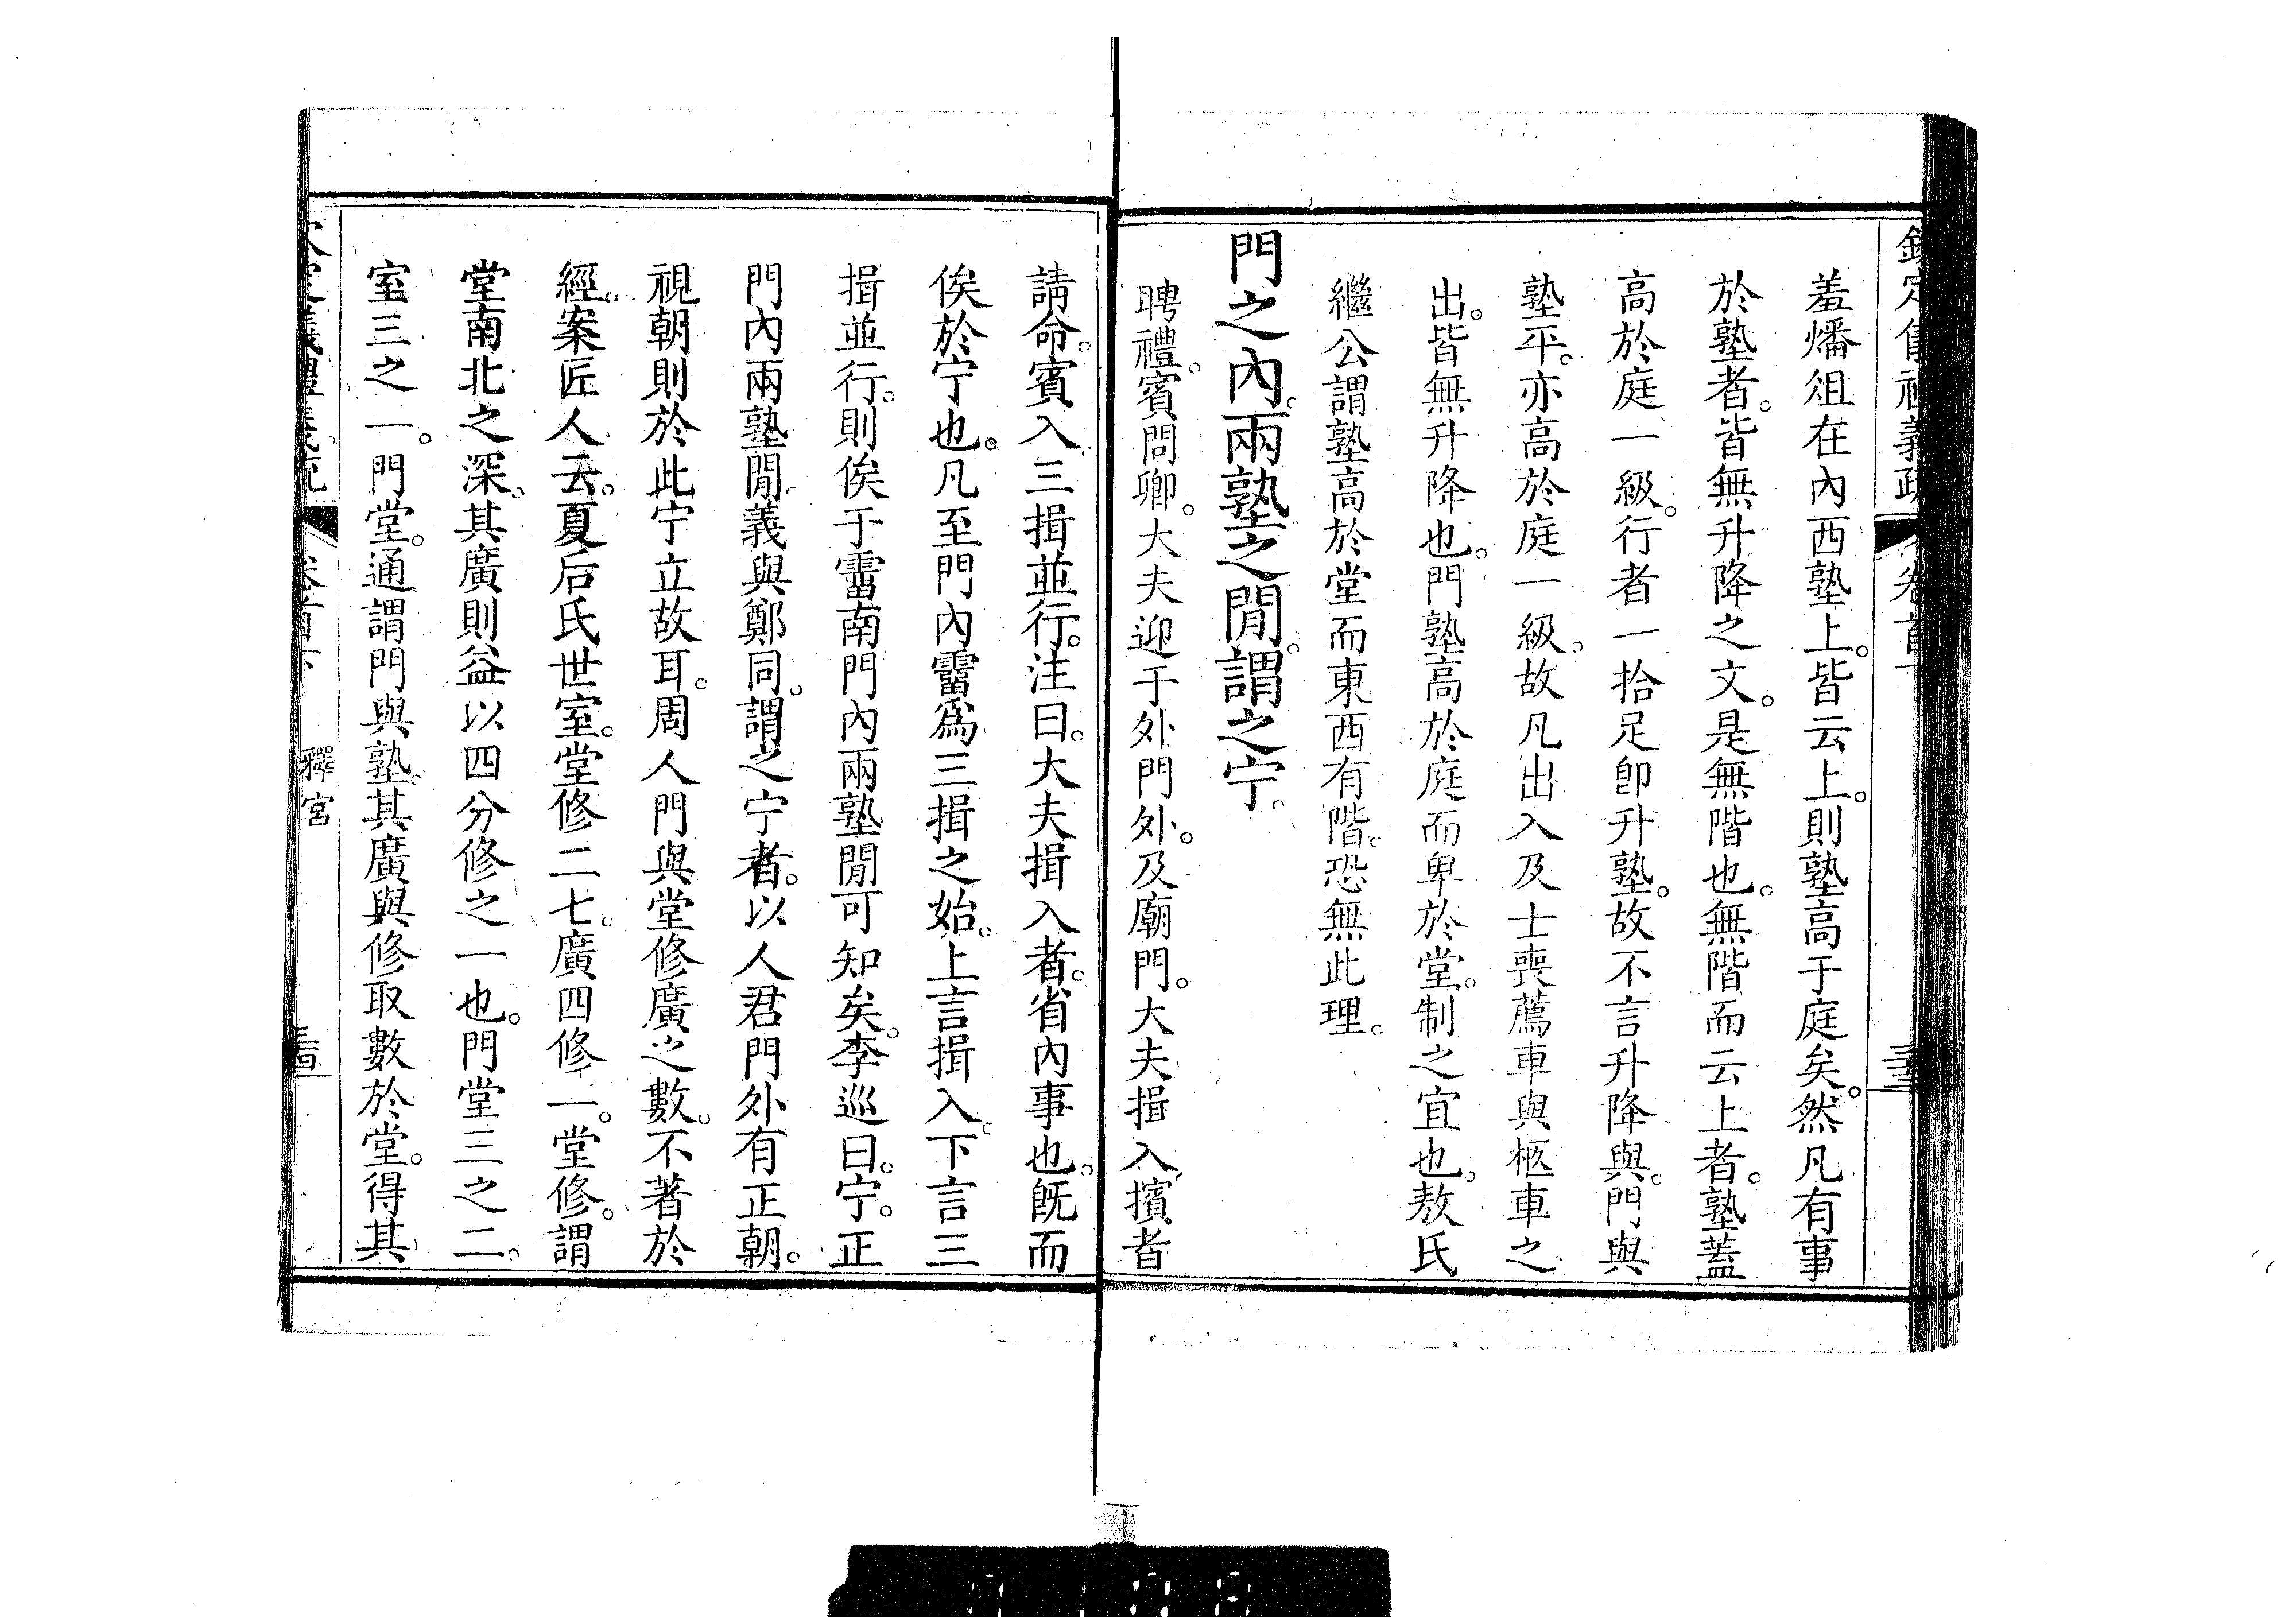 羞燔俎在內西塾上。皆云上。則塾高于庭矣。然凡有事
於塾者。皆無升降之文。是無階也。無階而云上者。塾蓋
高於庭一級。行者一拾足卽升塾。故不言升降與。門與
塾平。亦高於庭一級。故凡出入及士喪薦車與柩車之
出。皆無升降也。門塾高於庭而卑於堂。制之宜也。敖氏
繼公謂塾高於堂而東西有階。恐無此理。
門之內。兩塾之閒。謂之宁。
聘禮。賓問卿。大夫迎于外門外。及廟門。大夫揖入。擯者
請命。賓入三揖並行。注曰。大夫揖入者。省內事也。旣而
俟於宁也。凡至門內霤爲三揖之始。上言揖入。下言三
揖並行。則俟于霤南門內兩塾閒可知矣。李巡曰。宁。正
門內兩塾閒。義與鄭同。謂之宁者。以人君門外有正朝。
視朝則於此宁立故耳。周人門與堂修廣之數。不著於
經。案匠人云。夏后氏世室。堂修二七。廣四修一。堂修。謂
堂南北之深。其廣則益以四分修之一也。門堂三之二。
室三之一。門堂。通謂門與塾。其廣與修取數於堂。得其
釋宮